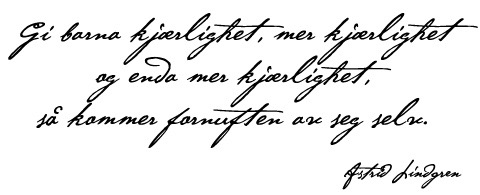 Gi barna kjærlighet, mer kjærlighet
og enda mer kjærlighet,
så kommer fornuften av seg selv.
Astrid Lindgren